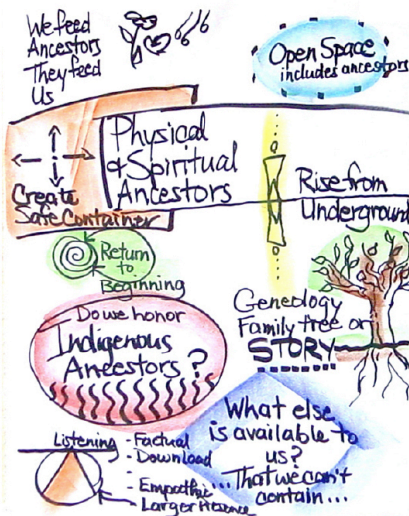 We feed
Ancestors
They feed
Us
Open Space
includes ancestors
Physical
& Spiritual
Ancestors
Create
Safe Container
Rise from
Underground
Return
to
Beginning
Do we honor
Indigenous
Ancestors?
Geneology
Family tree or
STORY
What else
is available to
us?
That we can't
contain...
Listening - Factual
- Download
- Empathic...
Larger Presence